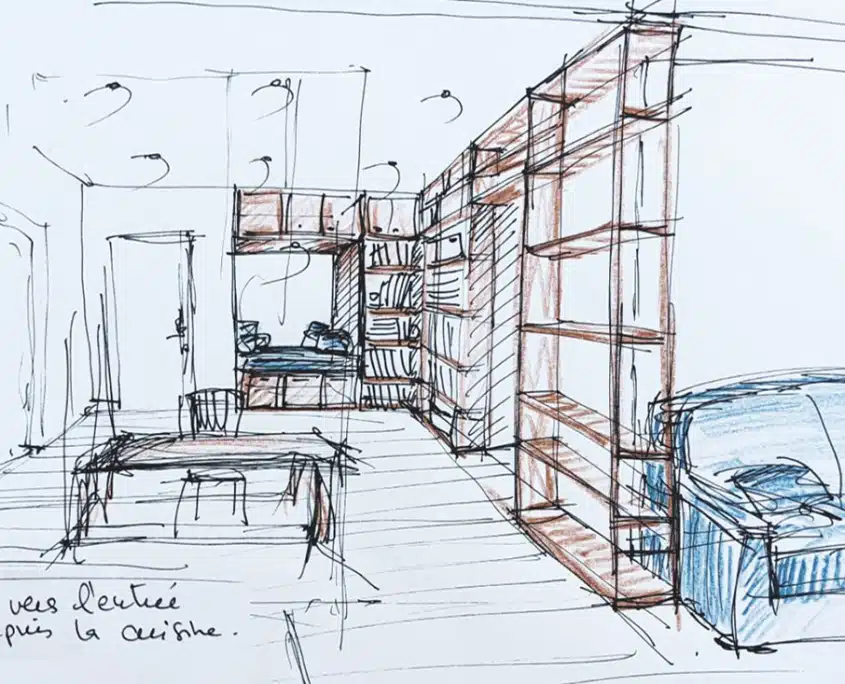 vers l'entrée
la cuisine.